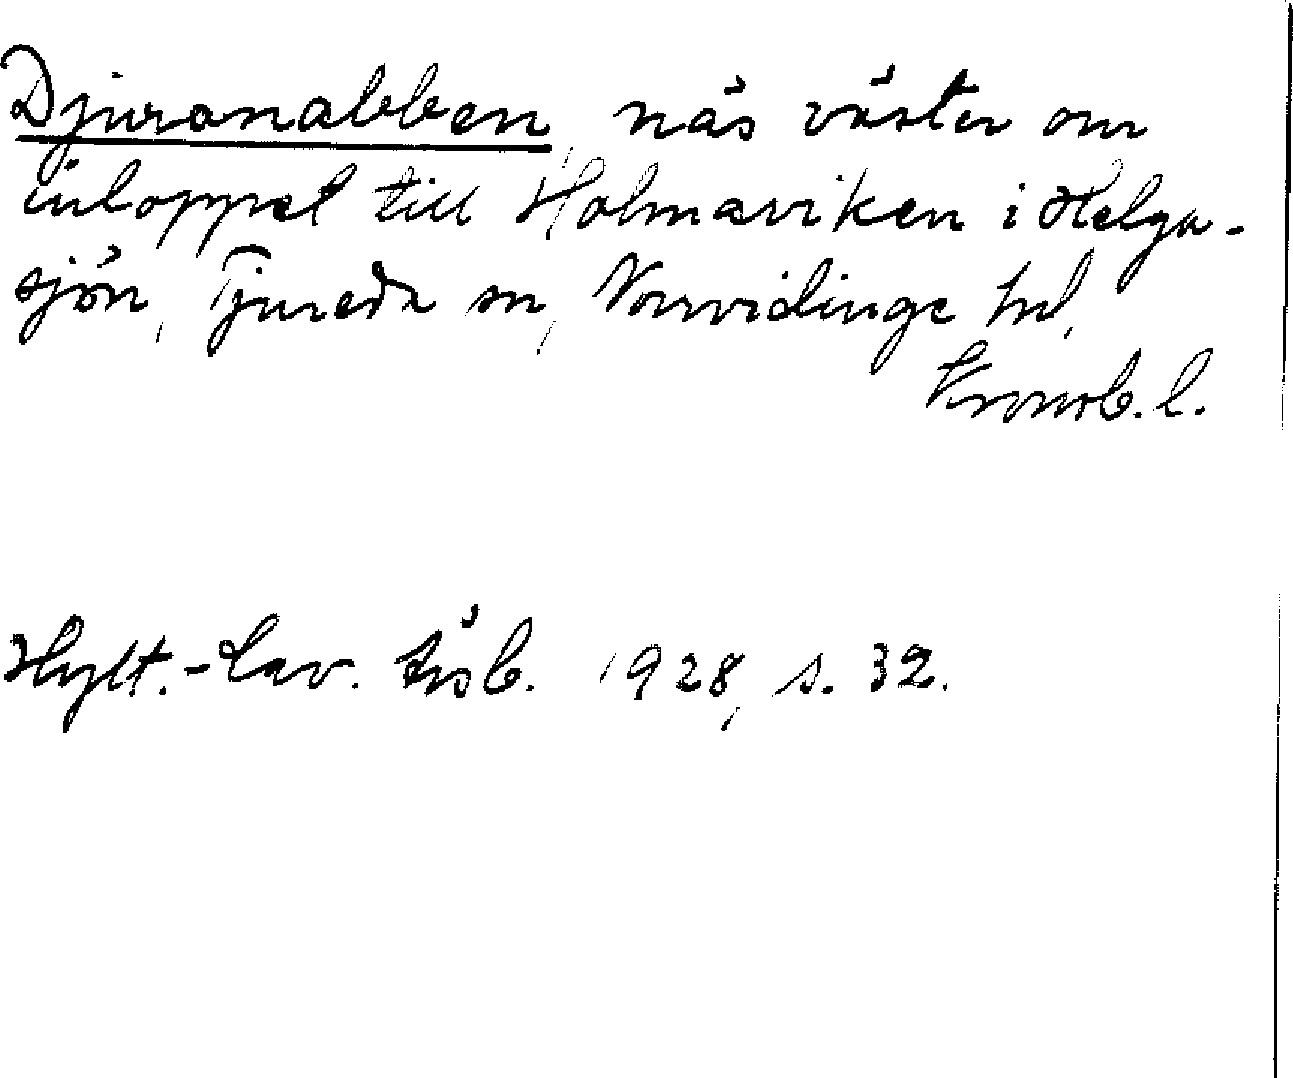 Djuranabben, näs väster om
inloppet till Holmaviken i Helga-
sjön, Tjureda sn, Norrvidinge hd,
Kronob. l.
Hylt.-Cav. årsb. 1928, s. 32.